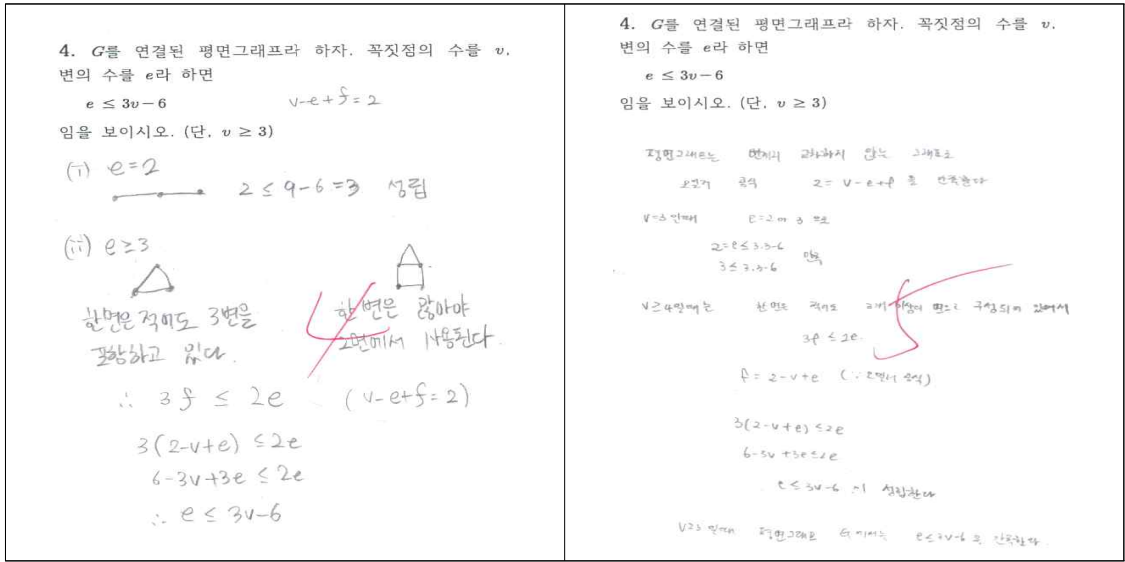 4. G를 연결된 평면그래프라 하자. 꼭짓점의 수를 v,
변의 수를 e라 하면
e ≤ 3v-6
v-e+f=2
임을 보이시오. (단, v ≥ 3)
(i) e=2
2 ≤ 9-6=3 성립
(ii) e≥3
한면은 적어도 3변을
포함하고 있다.
한 변은 많아야
2면에서 사용된다.
∴ 3f ≤ 2e (v-e+f=2)
3(2-v+e) ≤2e
6-3v+3e ≤ 2e
∴ e ≤ 3v-6
4. G를 연결된 평면그래프라 하자. 꼭짓점의 수를 v,
변의 수를 e라 하면
e ≤ 3v-6
임을 보이시오. (단, v ≥ 3)
평면그래프는 변끼리 교차하지 않는 그래프로
오일러 공식 2= v-e+f 를 만족한다
v=3 일때 e=2 or 3
2=e≤3.3-6
3≤3.3-6
만족
v≥4일때는 한 면은 적어도 이상의 변으로 구성되어 있어서
3f ≤ 2e
f = 2-v+e (∵오일러 공식)
3(2-v+e) ≤2e
6-3v+3e≤2e
e≤3v-6 이 성립한다
v≥3 일때 평면그래프 G 에서는 e≤3v-6 을 만족한다.